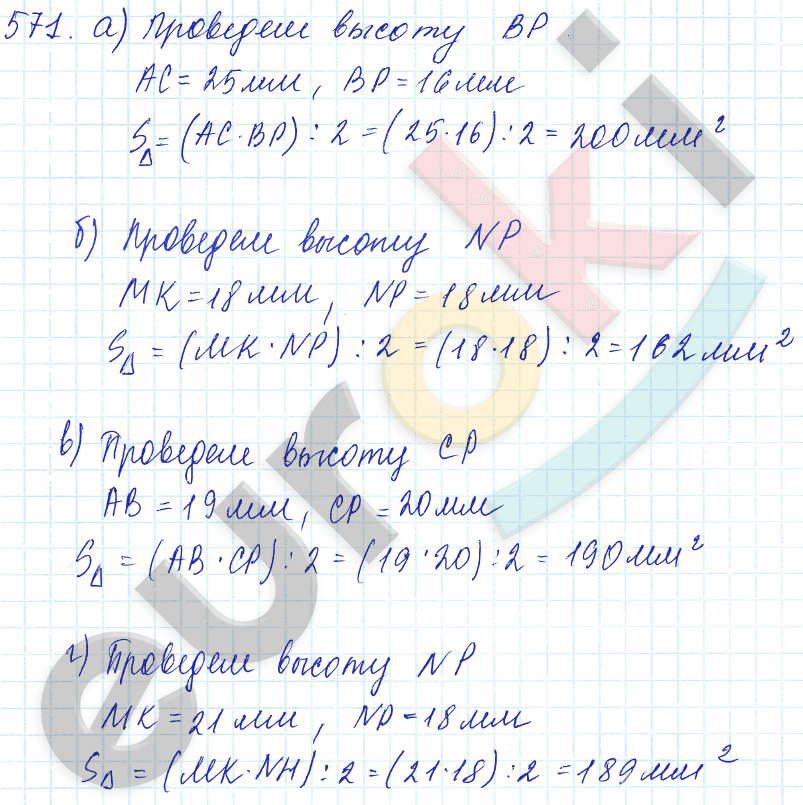 571. а) Проведем высоту BP
AC = 25 мм, BP = 16 мм
S△ = (AC·BP) : 2 = (25·16) : 2 = 200 мм²
б) Проведем высоту NP
MK = 18 мм, NP = 18 мм
S△ = (MK·NP) : 2 = (18·18) : 2 = 162 мм²
в) Проведем высоту CP
AB = 19 мм, CP = 20 мм
S△ = (AB·CP) : 2 = (19·20) : 2 = 190 мм²
г) Проведем высоту NP
MK = 21 мм, NP = 18 мм
S△ = (MK·NH) : 2 = (21·18) : 2 = 189 мм²
euroki